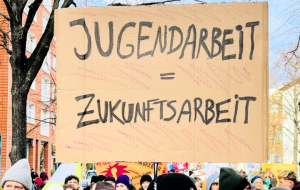 JUGENDARBEIT
=
ZUKUNFTSARBEIT